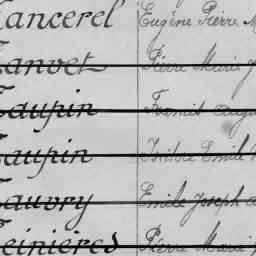 Tancerel Eugène Pierre M
Tanvet Pierre Marie J
Taupin Firmit Aug
Taupin Isidore Emile
Tauvry Emile Joseph
Teinières Pierre Marie